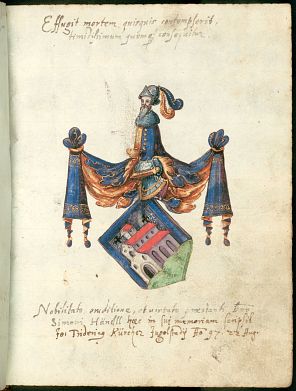 Effugit mortem, quisquis contempserit,
timidissimum quemque consequitur.
Nobilitate, eruditione, et virtute praestanti Dno
Simoni Händll haec in sui memoriam scripsit
Jo: Fridericus Ingolstadij Ao 97. 22 Aug: